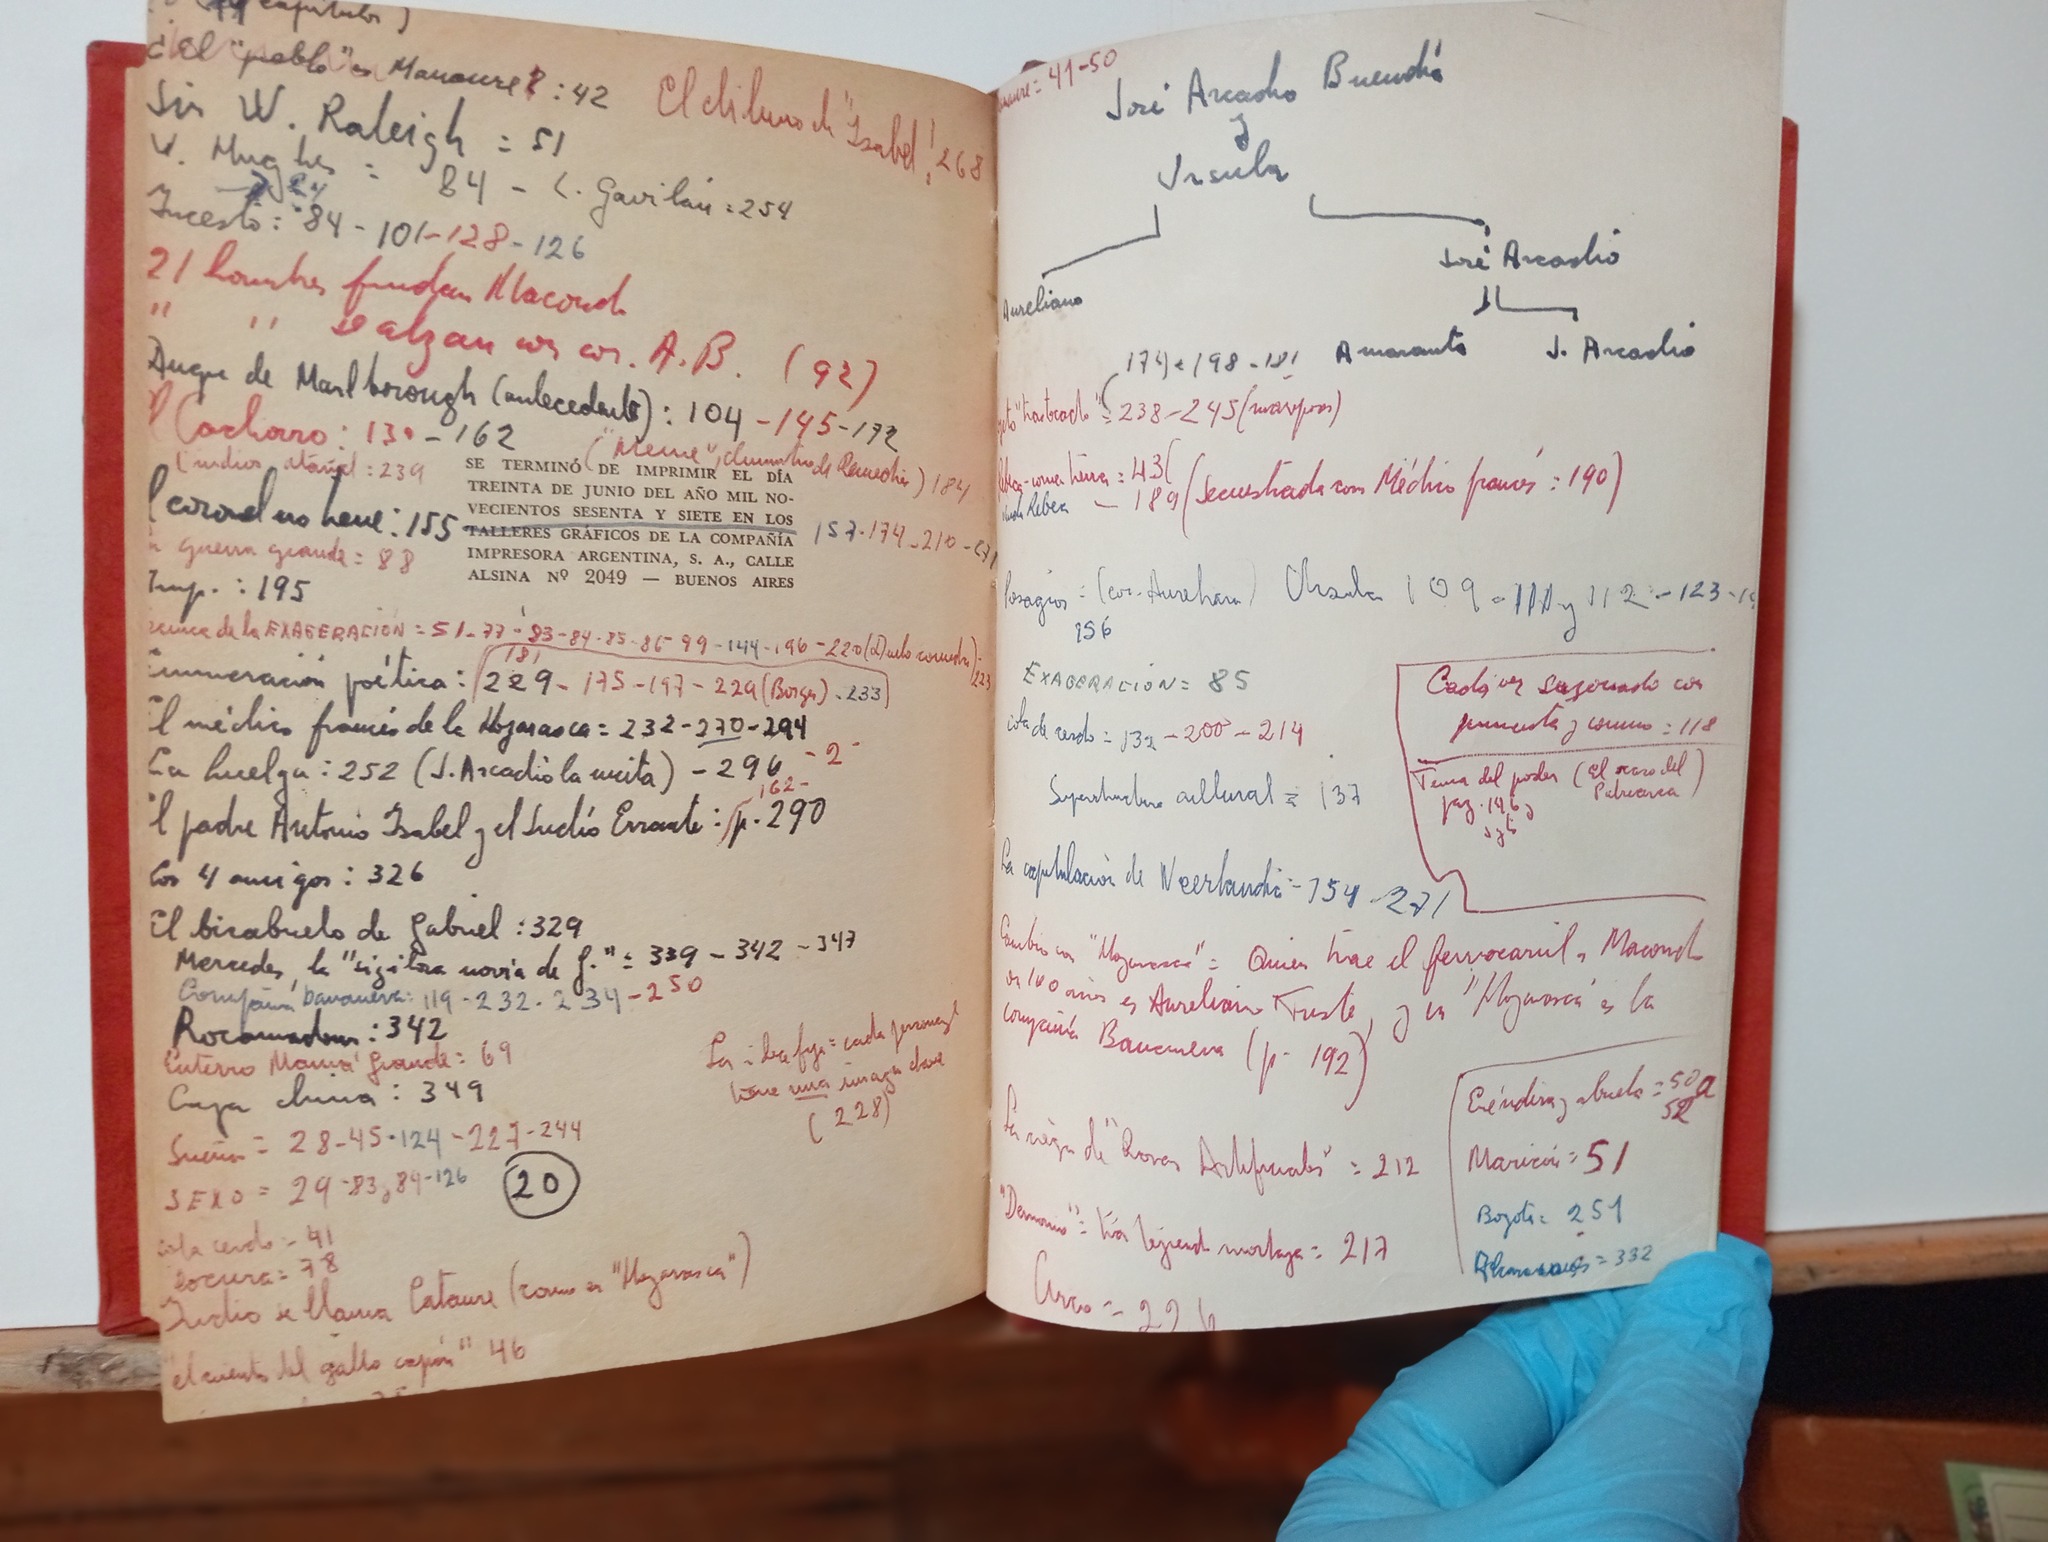 capítulos)
¿El "pueblo" es Manaure? : 42
El diluvio de "Isabel"! 268
Sir W. Raleigh = 51
V. Hughes = 84 - L. Gavilán = 254
Incesto : 84 - 101 - 128 - 126
21 hombres fundan Macondo
" " se alzan con cor. A.B. (92)
Duque de Marlborough (antecedente) : 104 - 145 - 172
Cachorro : 130 - 162
("Meme", de Remedios) 184
(indios : 239
SE TERMINÓ DE IMPRIMIR EL DÍA
TREINTA DE JUNIO DEL AÑO MIL NO-
VECIENTOS SESENTA Y SIETE EN LOS
TALLERES GRÁFICOS DE LA COMPAÑÍA
IMPRESORA ARGENTINA, S. A., CALLE
ALSINA Nº 2049 — BUENOS AIRES
l coronel no tiene : 155
157 - 174 - 210 - 271
guerra grande = 88
Imp. : 195
de la EXAGERACIÓN = 51 - 77 - 83 - 84 - 85 - 86 - 99 - 144 - 196 - 220 (Duelo 223
181
Enumeración poética : 229 - 175 - 197 - 229 (Borges) - 233
El médico francés de la Hojarasca = 232 - 270 - 294
La huelga : 252 (J. Arcadio la incita) - 296 - 2
162 -
El padre Antonio Isabel y el Judío Errante : p. 290
Los 4 amigos : 326
El bisabuelo de Gabriel : 329
Mercedes, la "sigilosa novia de G." = 339 - 342 - 347
Compañía bananera : 119 - 232 - 234 - 250
Rocamadour : 342
Entierro Mamá Grande : 69
Caja china : 349
La idea fija = cada personaje
tiene una imagen clave
(228)
Sueño = 28 - 45 - 124 - 227 - 244
SEXO = 29 - 83 y 84 - 126
20
cola cerdo - 41
locura = 78
Indio se llama Cataure (como en "Hojarasca")
el cuento del gallo capón" 46
= 41 - 50
José Arcadio Buendía
y
Ursula
José Arcadio
Aureliano
Amaranta J. Arcadio
174 - 198 - 181
"trastocado" = 238 - 245 (mariposas)
Rebeca - come tierra = 43
Rebeca - 189 (Secuestrada con Médico francés : 190)
Presagios = (cor. Aureliano) Ursula 109 - 111 y 112 - 123
156
EXAGERACIÓN = 85
cola de cerdo = 132 - 200 - 214
Cadáver sazonado con
pimienta y comino = 118
Superstructura cultural = 137
Tema del poder (El ocaso del
Patriarca)
pag. 146 y
sgts
La capitulación de Neerlandia = 154 - 271
Cambio con "Hojarasca" = Quien trae el ferrocarril a Macondo
en 100 años es Aureliano Triste, y en "Hojarasca" es la
compañía Bananera (p. 192)
Eréndira y abuela = 50 a
52
La viejita de "Rosas Artificiales" = 212
Maricón = 51
"Demonio" = tía tejiendo mortaja = 217
Bogotá = 251
= 332
Circo = 226